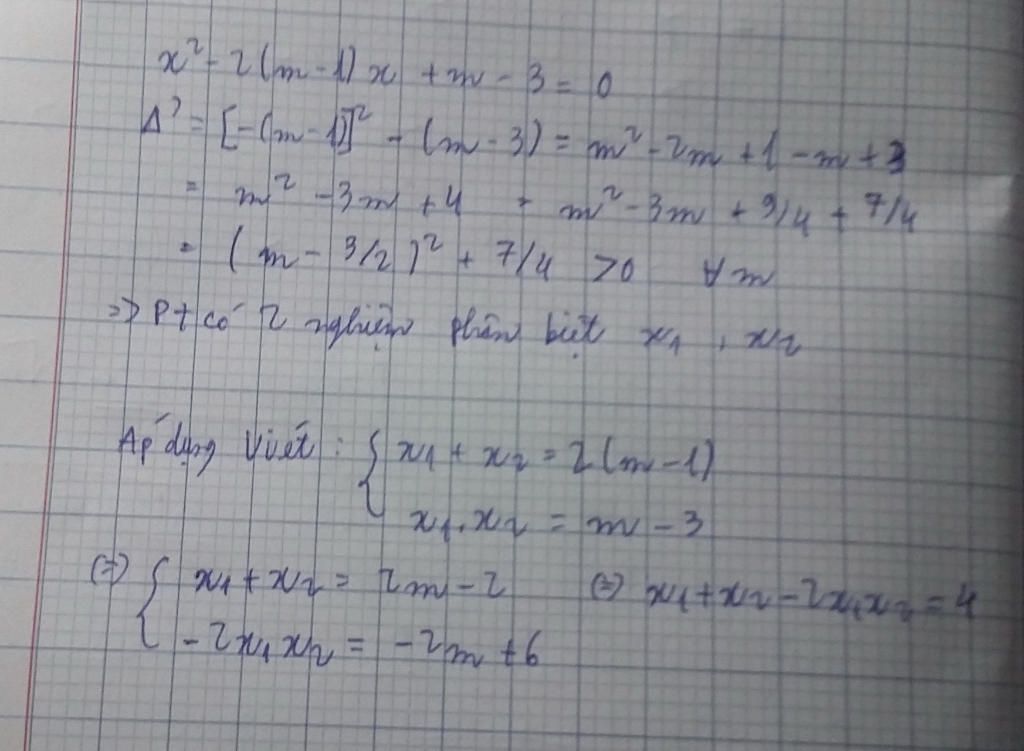 x² - 2(m-1)x + m - 3 = 0
Δ' = [-(m-1)]² - (m-3) = m² - 2m + 1 - m + 3
= m² - 3m + 4 = m² - 3m + 9/4 + 7/4
= (m - 3/2)² + 7/4 >0 ∀m
=> Pt có 2 nghiệm phân biệt x₁, x₂
Áp dụng Viét: { x₁ + x₂ = 2(m-1)
x₁.x₂ = m - 3
(=) { x₁ + x₂ = 2m - 2 (=) x₁ + x₂ - 2x₁x₂ = 4
-2x₁x₂ = -2m + 6